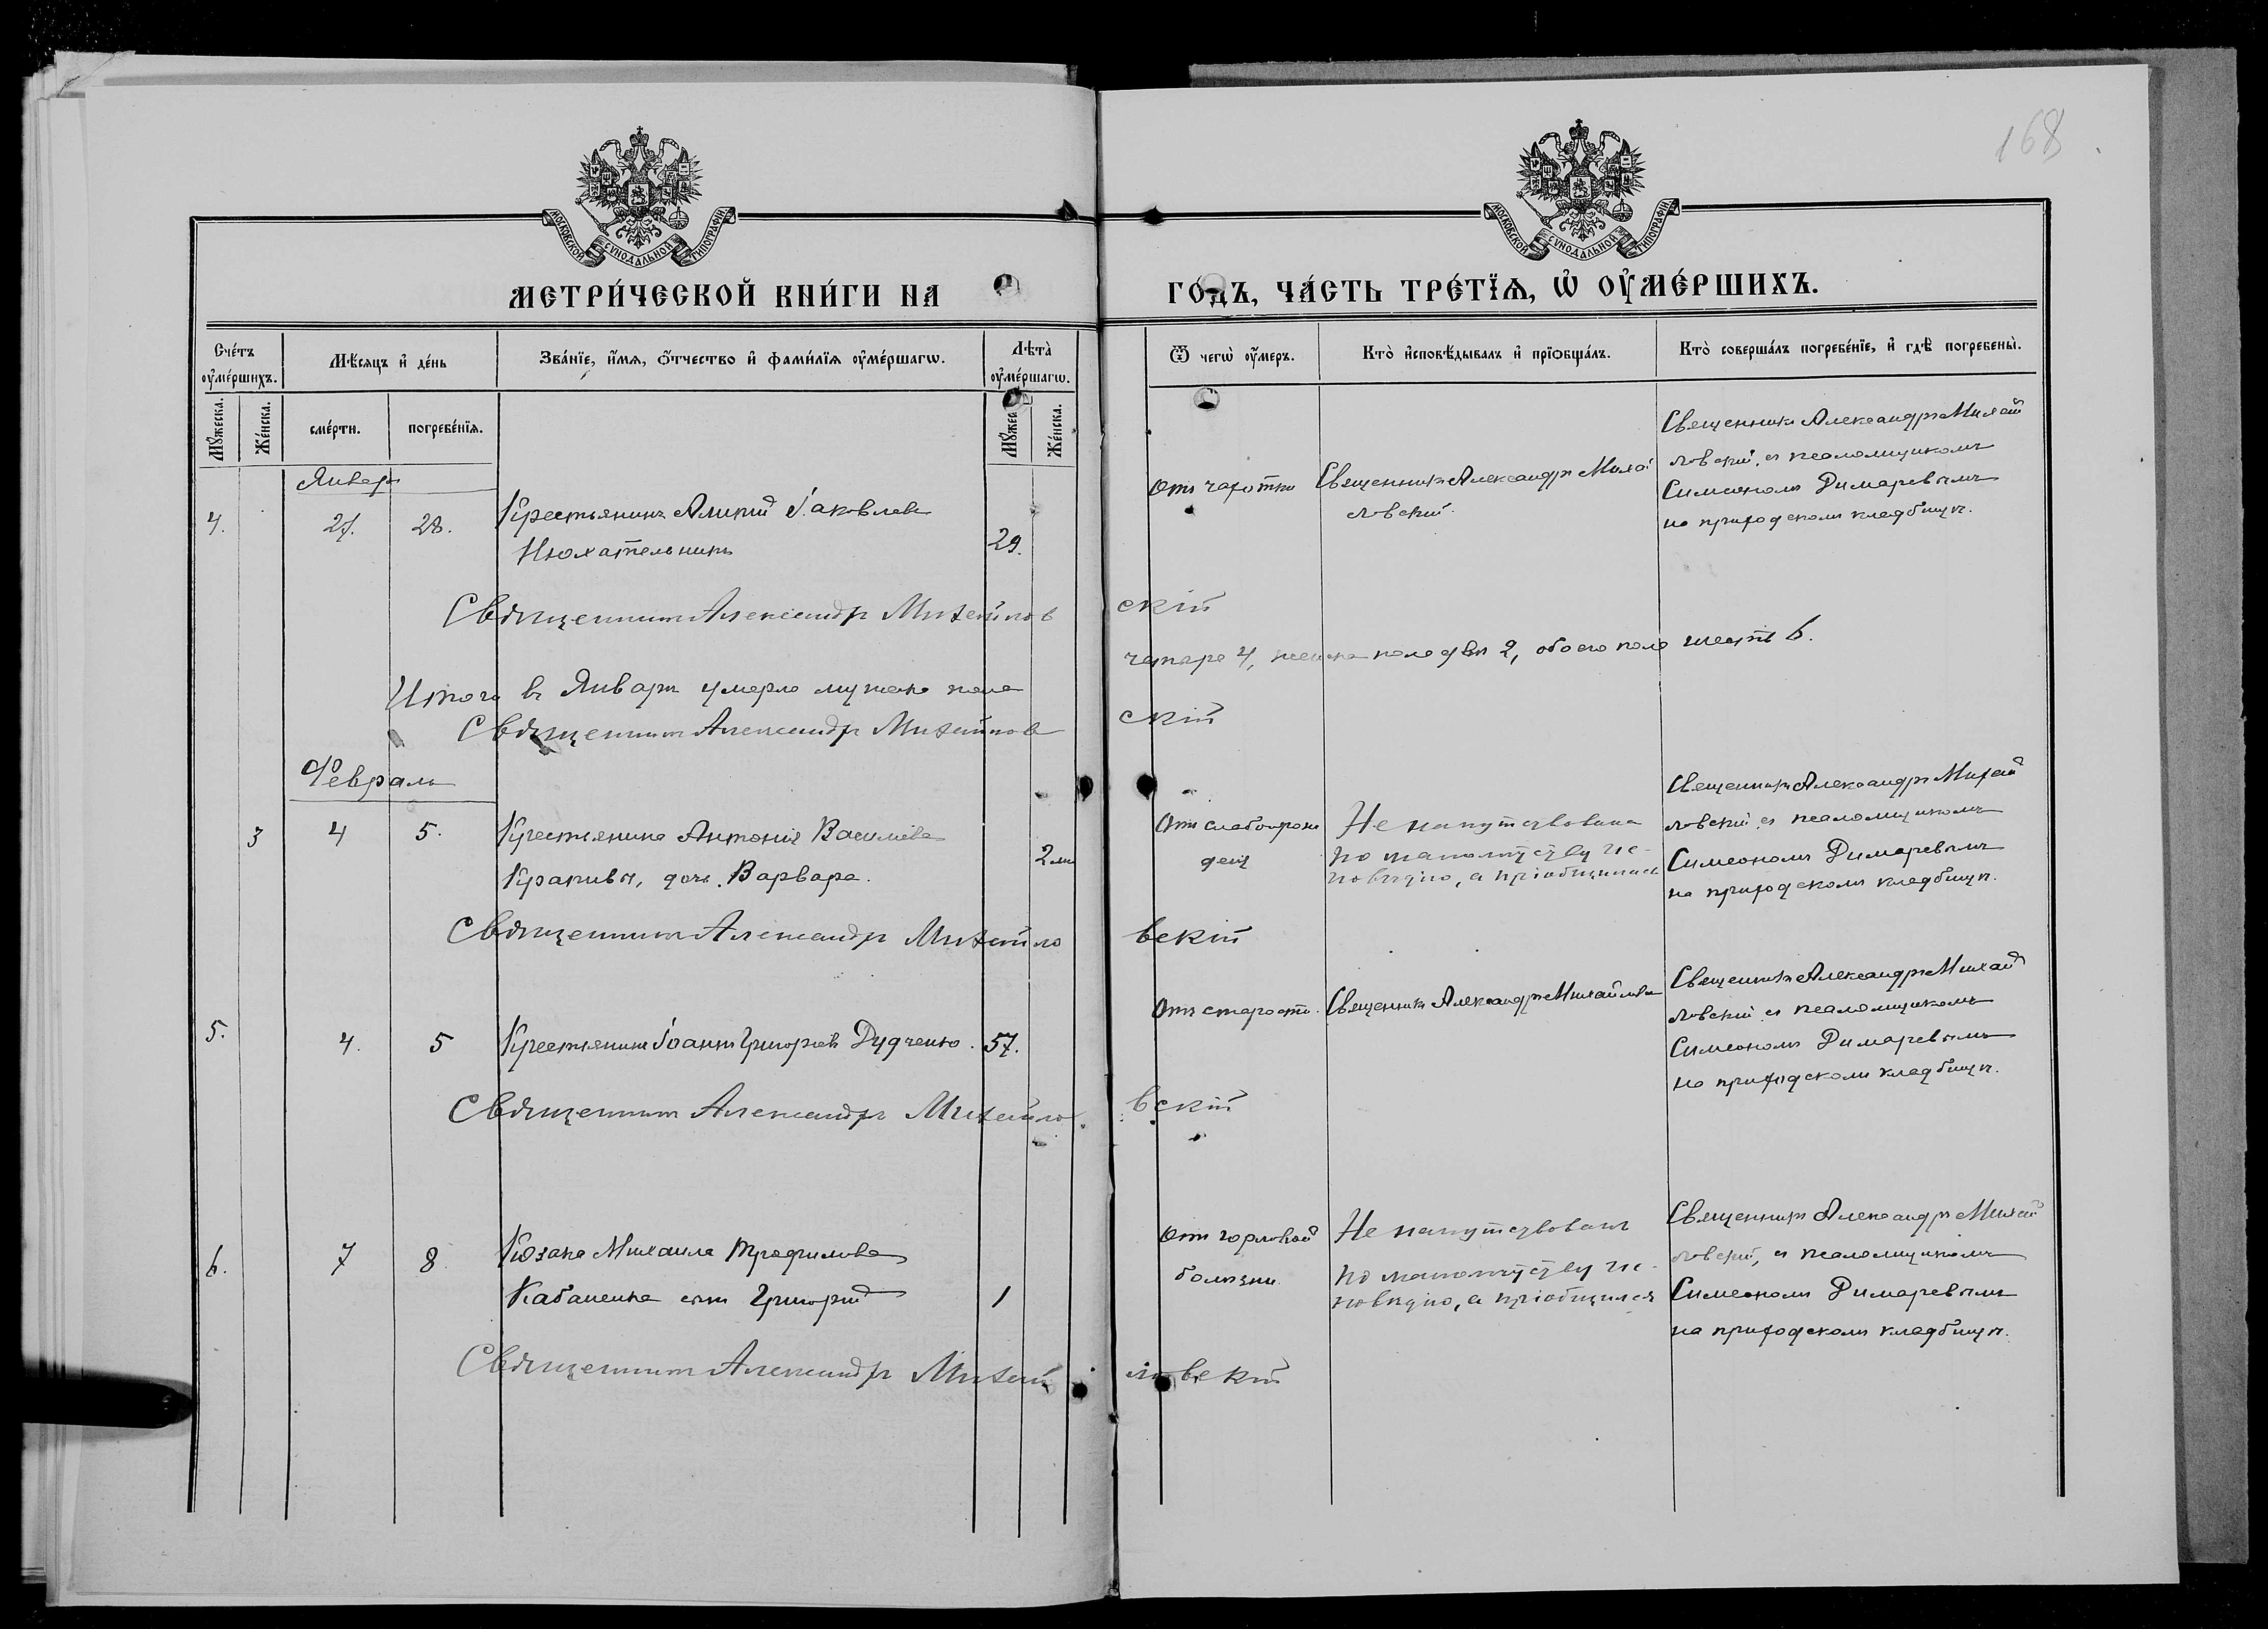 168
МОСКОВСКОЙ СУНОДАЛЬНОЙ ТИПОГРАФІИ
МОСКОВСКОЙ СУНОДАЛЬНОЙ ТИПОГРАФІИ
МЕТРИ́ЧЕСКОЙ КНИ́ГИ НА
ГО́ДЪ, ЧА́СТЬ ТРЕ́ТЇѦ, Ѡ҆ ОУ҆МЕ́РШИХЪ.
Сче́тъ оу҆ме́ршихъ.
Мѣ́сѧцъ и҆ де́нь
Зва́нїе, и҆́мѧ, ѻ҆́тчество и҆ фами́лїѧ оу҆ме́ршагѡ.
Лѣта̀ оу҆ме́ршагѡ.
Ѿ чегѡ̀ оу҆́меръ.
Кто̀ и҆сповѣ́дывалъ и҆ прїѻбща́лъ.
Кто̀ соверша́лъ погребе́нїе, и҆ гдѣ̀ погребены̀.
Мꙋ́жеска.
Же́нска.
сме́рти.
погребе́нїѧ.
Мꙋ́жес
Же́нска.
Январь
4.
27.
28.
Крестьянинъ Алипій Іаковлевъ
Нюхательникъ
29.
Отъ чахотки
Священникъ Александръ Михай
ловскій.
Священникъ Александръ Михай
ловскій, съ псаломщикомъ
Симеономъ Димаревымъ
на приходскомъ кладбищѣ.
Священникъ Александръ Михайловскій
Итого въ Январѣ умерло мужска пола четыре 4, женска пола двѣ 2, обоего пола шесть 6.
Священникъ Александръ Михайловскій
Февраль
3
4
5.
Крестьянина Антонія Василіева
Крапивы, дочь Варвара.
2 м
Отъ слаборож
ден
Не напутствована
по малолѣтству ис-
повѣдію, а пріобщилась
Священникъ Александръ Михай
ловскій, съ псаломщикомъ
Симеономъ Димаревымъ
на приходскомъ кладбищѣ.
Священникъ Александръ Михайловскій
5.
4.
5
Крестьянинъ Іоаннъ Григоріевъ Дудченко.
57.
Отъ старости.
Священникъ Александръ Михайловск
Священникъ Александръ Михай
ловскій, съ псаломщикомъ
Симеономъ Димаревымъ
на приходскомъ кладбищѣ.
Священникъ Александръ Михайловскій
6.
7
8.
Козака Михаила Трофимова
Кабаненка сынъ Григорій
1
Отъ горловой
болѣзни.
Не напутствованъ
по малолѣтству ис-
повѣдію, а пріобщился
Священникъ Александръ Михай
ловскій, съ псаломщикомъ
Симеономъ Димаревымъ
на приходскомъ кладбищѣ.
Священникъ Александръ Михайловскій